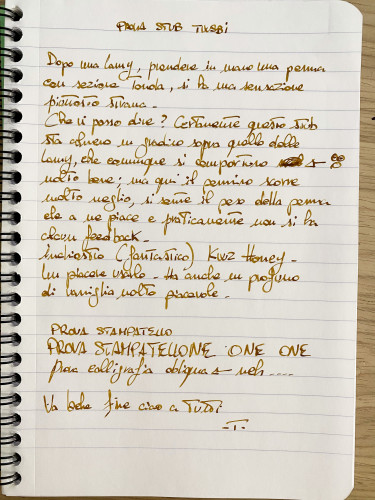 PROVA STUB TWSBI
Dopo una Lamy, prendere in mano una penna
con sezione tonda, si ha una sensazione
piuttosto strana.
Che vi posso dire? Certamente questo stub
sta almeno un gradino sopra quello delle
Lamy, che comunque si comportano
molto bene; ma qui il pennino scorre
molto meglio, si sente il peso della penna
che a me piace e praticamente non si ha
alcun feedback.
Inchiostro (fantastico) KWZ Honey.
Un piacere usarlo. Ha anche un profumo
di vaniglia molto piacevole.
PROVA STAMPATELLO
PROVA STAMPATELLONE ONE ONE
Prova calligrafia obliqua meh....
Va bene fine ciao a TUTTI
-T.